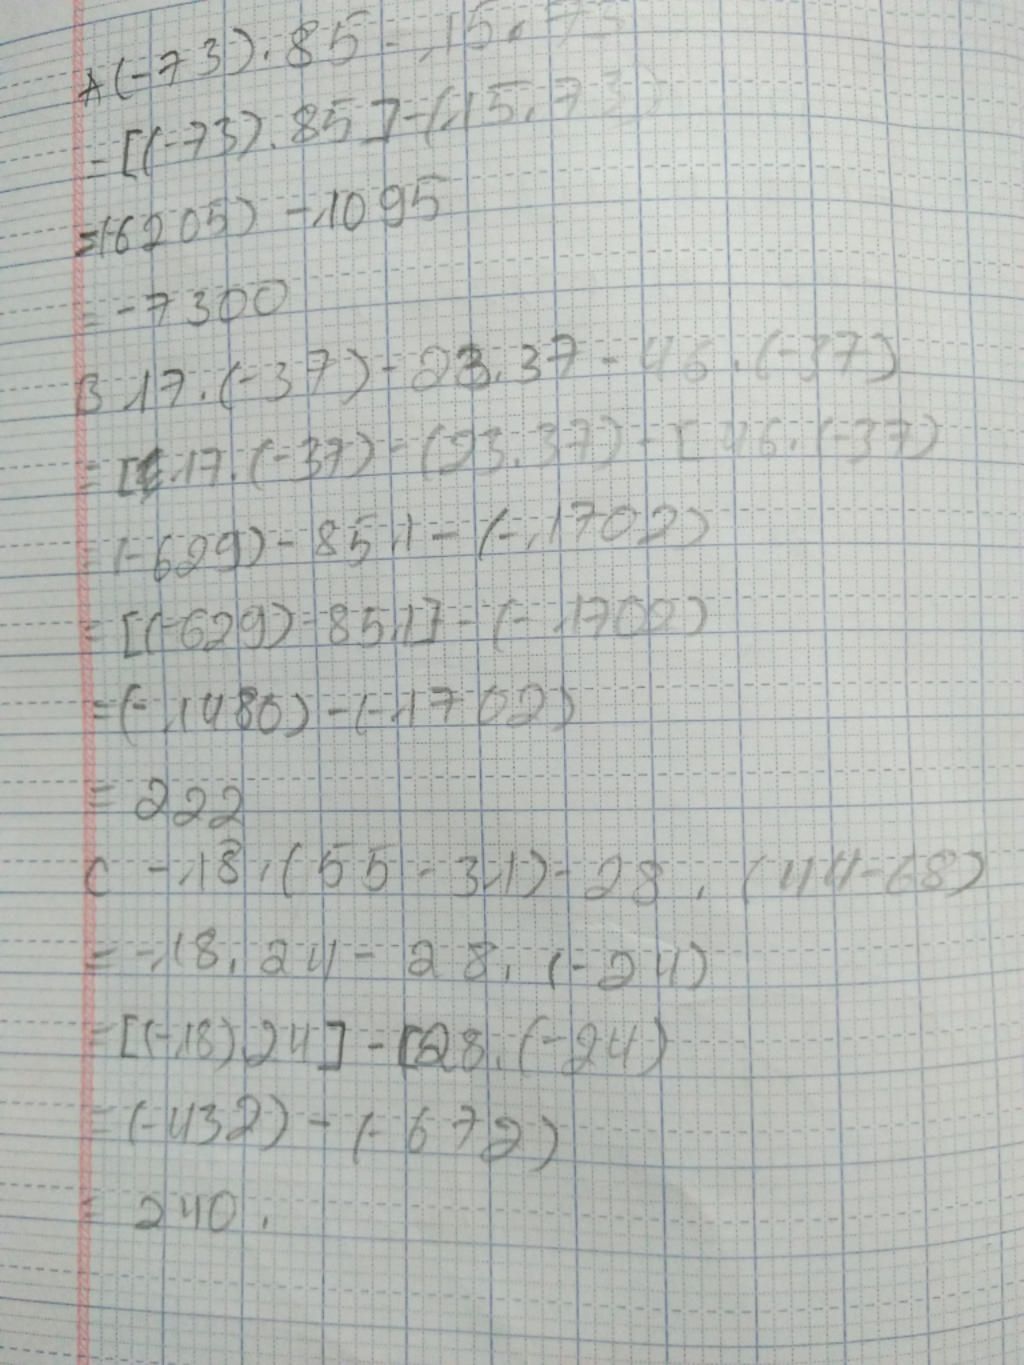 A (-73).85 - 15.73
= [(-73).85] - (15.73)
= (-6205) - 1095
= -7300
B 17.(-37) - 23.37 - 46.(-37)
= [17.(-37) - (23.37) - [46.(-37)
= (-629) - 851 - (-1702)
= [(-629) - 851] - (-1702)
= (-1480) - (-1702)
= 222
C -18.(55 - 31) - 28.(44 - 68)
= -18.24 - 28.(-24)
= [(-18).24] - [28.(-24)
= (-432) - (-672)
= 240.